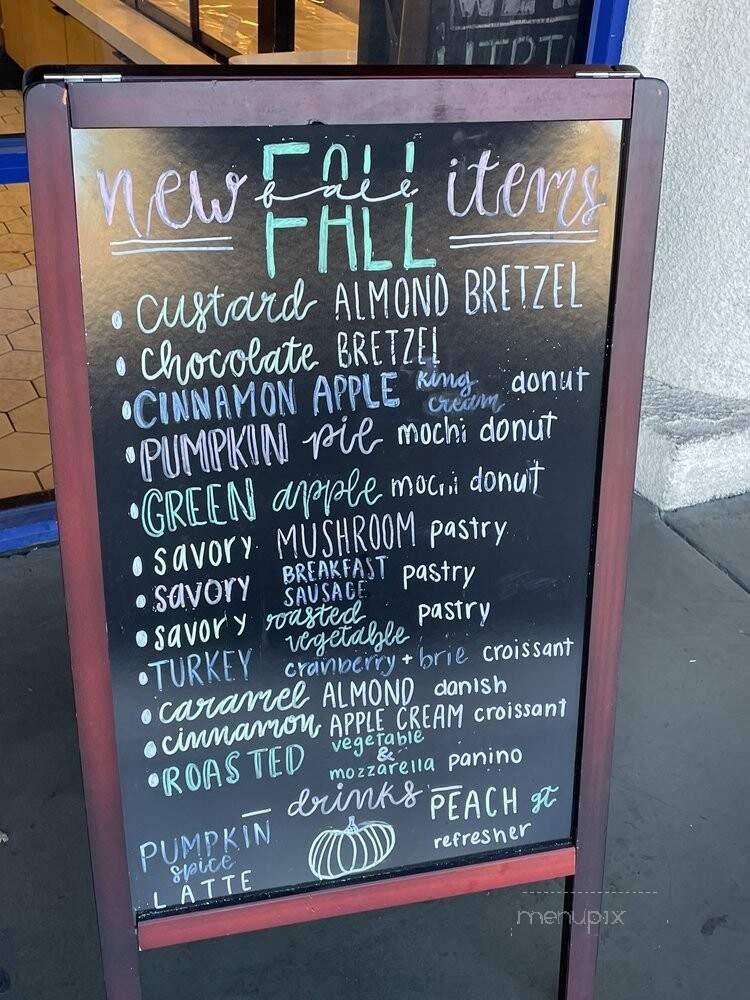 new FALL fall FALL items
custard ALMOND BRETZEL
chocolate BRETZEL
CINNAMON APPLE king cream donut
PUMPKIN pie mochi donut
GREEN apple mochi donut
savory MUSHROOM pastry
savory BREAKFAST SAUSAGE pastry
savory roasted vegetable pastry
TURKEY cranberry + brie croissant
caramel ALMOND danish
cinnamon APPLE CREAM croissant
ROASTED vegetable & mozzarella panino
drinks
PUMPKIN spice LATTE
PEACH gt refresher
menupix